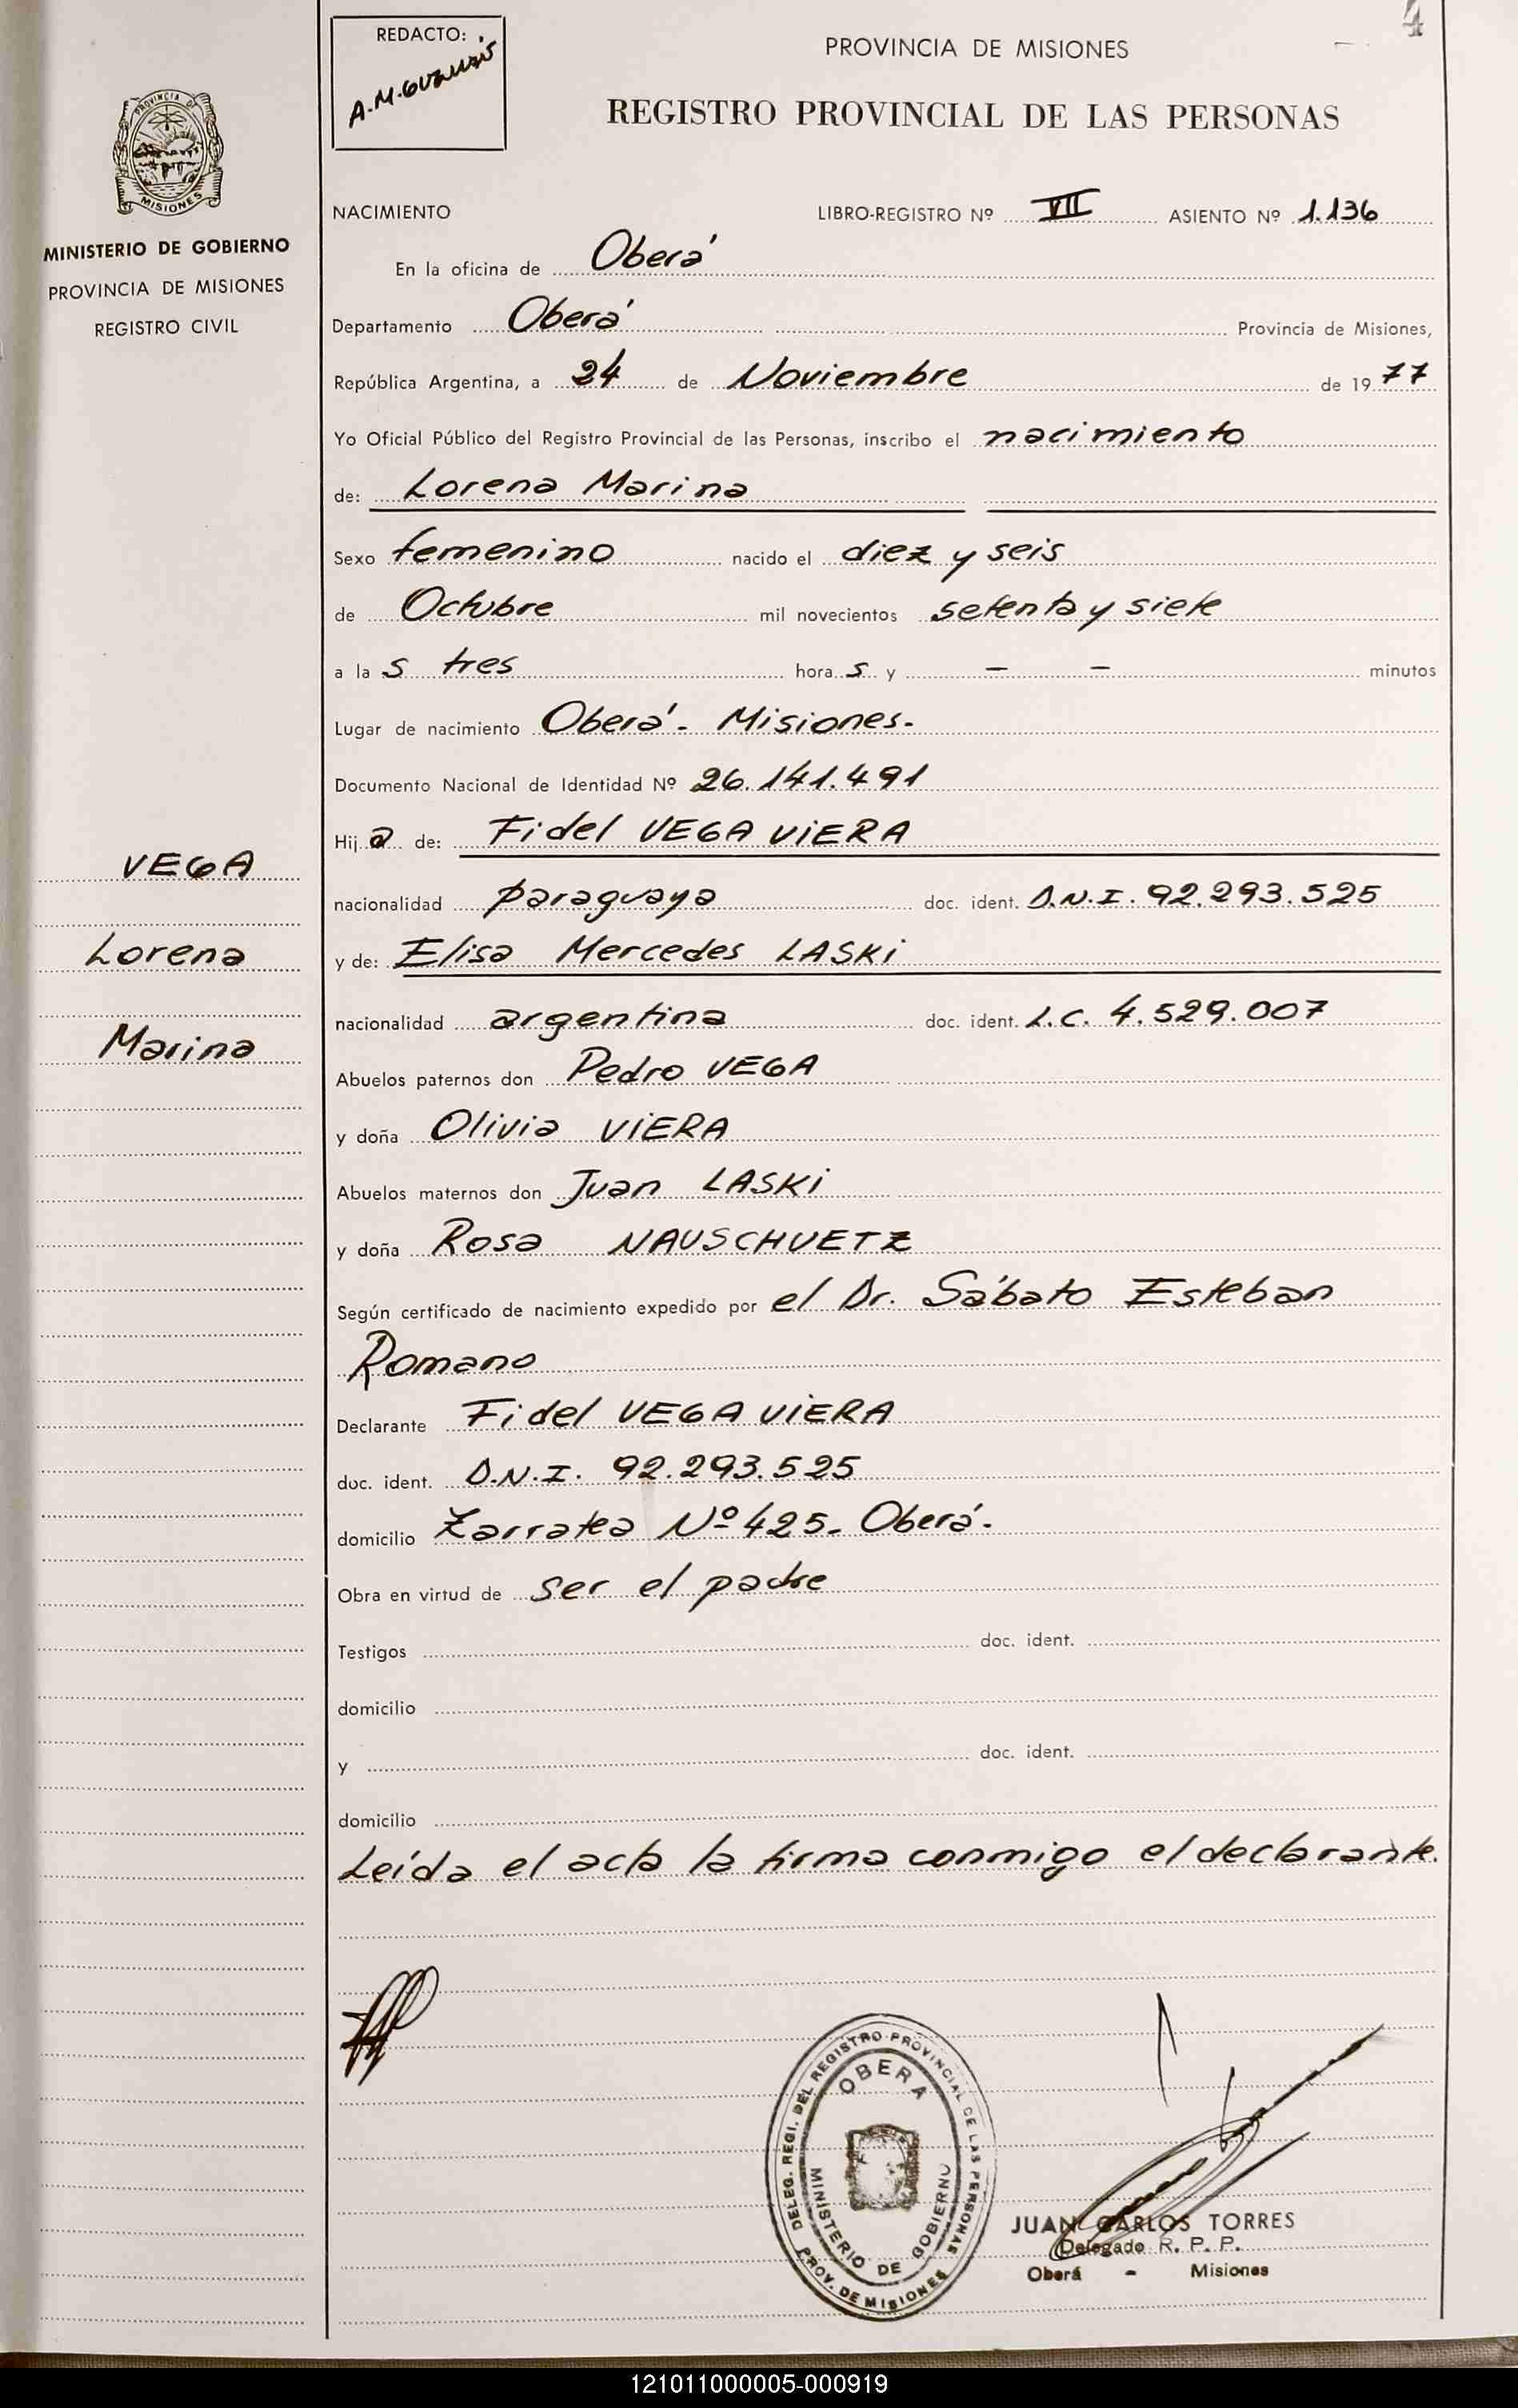 4
REDACTO:
A.M. GUZMÁN
PROVINCIA DE MISIONES
REGISTRO PROVINCIAL DE LAS PERSONAS
PROVINCIA DE
MISIONES
MINISTERIO DE GOBIERNO
PROVINCIA DE MISIONES
REGISTRO CIVIL
NACIMIENTO LIBRO-REGISTRO Nº VII ASIENTO Nº 1.136
En la oficina de Oberá
Departamento Oberá Provincia de Misiones,
República Argentina, a 24 de Noviembre de 1977
Yo Oficial Público del Registro Provincial de las Personas, inscribo el nacimiento
de: Lorena Marina
Sexo femenino nacido el diez y seis
de Octubre mil novecientos setenta y siete
a las tres horas y — — minutos
Lugar de nacimiento Oberá - Misiones.
Documento Nacional de Identidad Nº 26.141.491
Hija de: Fidel VEGA VIERA
VEGA
nacionalidad paraguaya doc. ident. D.N.I. 92.293.525
Lorena
y de: Elisa Mercedes LASKI
nacionalidad argentina doc. ident. L.C. 4.529.007
Marina
Abuelos paternos don Pedro VEGA
y doña Olivia VIERA
Abuelos maternos don Juan LASKI
y doña Rosa NAUSCHUETZ
Según certificado de nacimiento expedido por el Dr. Sábato Esteban
Romano
Declarante Fidel VEGA VIERA
doc. ident. D.N.I. 92.293.525
domicilio Zarratea Nº 425. Oberá.
Obra en virtud de ser el padre
Testigos doc. ident.
domicilio
y doc. ident.
domicilio
Leída el acta la firma conmigo el declarante.
DELEG. REGI. DEL REGISTRO PROVINCIAL DE LAS PERSONAS
OBERA
MINISTERIO DE GOBIERNO
PROV. DE MISIONES
JUAN CARLOS TORRES
Delegado R. P. P.
Oberá - Misiones
121011000005-000919